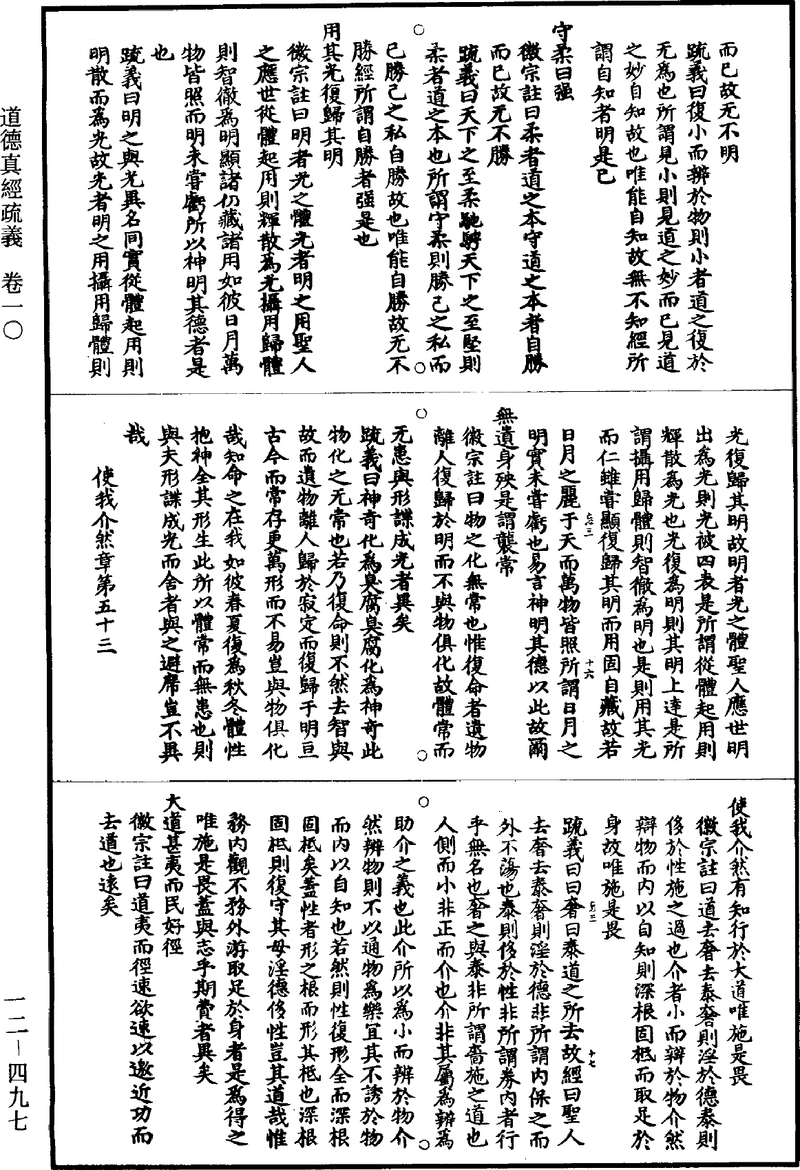 道德真經疏義　卷一〇
一二—四九七
而已故无不明
疏義曰復小而辨於物則小者道之復於
无為也所謂見小則見道之妙而已見道
之妙自知故也唯能自知故無不知經所
謂自知者明是已
守柔曰强
徽宗註曰柔者道之本守道之本者自勝
而已故无不勝
疏義曰天下之至柔馳騁天下之至堅則
柔者道之本也所謂守柔則勝己之私而
已勝己之私自勝故也唯能自勝故无不
勝經所謂自勝者强是也
用其光復歸其明
徽宗註曰明者光之體光者明之用聖人
之應世從體起用則輝散為光攝用歸體
則智徹為明顯諸仁藏諸用如彼日月萬
物皆照而明未嘗虧所以神明其德者是
也
疏義曰明之與光異名同實從體起用則
明散而為光故光者明之用攝用歸體則
光復歸其明故明者光之體聖人應世明
出為光則光被四表是所謂從體起用則
輝散為光也光復為明則其明上達是所
謂攝用歸體則智徹為明也是則用其光
而仁雖嘗顯復歸其明而用固自藏故若
日月之麗于天而萬物皆照所謂日月之
明實未嘗虧也易言神明其德以此故爾
無遺身殃是謂襲常
徽宗註曰物之化無常也惟復命者遺物
離人復歸於明而不與物俱化故體常而
无患與形諜成光者異矣
疏義曰神奇化為臭腐臭腐化為神奇此
物化之无常也若乃復命則不然去智與
故而遺物離人歸於寂定而復歸于明亘
古今而常存更萬形而不易豈與物俱化
哉知命之在我如彼春夏復為秋冬體性
抱神全其形生此所以體常而無患也則
與夫形諜成光而舍者與之避席豈不異
哉
使我介然章第五十三
十六
使我介然有知行於大道唯施是畏
徽宗註曰道去奢去泰奢則淫於德泰則
侈於性施之過也介者小而辨於物介然
辯物而內以自知則深根固柢而取足於
身故唯施是畏
疏義曰曰奢曰泰道之所去故經曰聖人
去奢去泰奢則淫於德非所謂內保之而
外不蕩也泰則侈於性非所謂券內者行
乎無名也奢之與泰非所謂嗇施之道也
人側而小非正而介也介非其屬為辨為
助介之義也此介所以為小而辨於物介
然辨物則不以通物為樂宜其不誘於物
而內以自知也若然則性復形全而深根
固柢矣蓋性者形之根而形其柢也深根
固柢則復守其母淫德侈性豈其道哉惟
務內觀不務外游取足於身者是為得之
唯施是畏蓋與志乎期費者異矣
大道甚夷而民好徑
徽宗註曰道夷而徑速欲速以邀近功而
去道也遠矣
十七